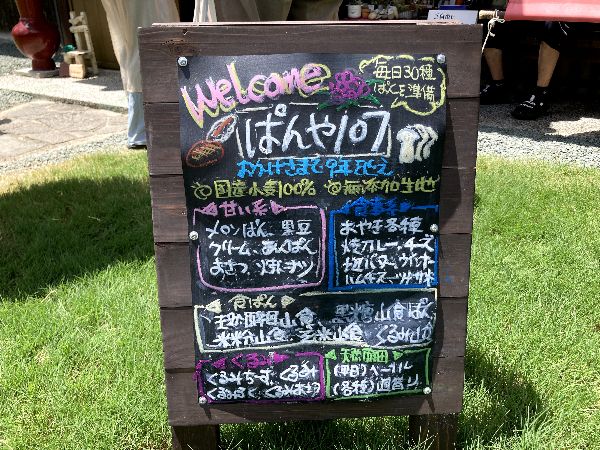 Welcome
毎日30種
ぱんを準備
ぱんや107
おかげさまで9年めです
国産小麦100% 無添加生地
甘い系
メロンぱん、黒豆
クリーム、あんぱん
おさつ、
食事系
おやき各種
焼カレー、チーズ
塩バター、ウインナー
食ぱん
天然酵母山食 黒糖山食ぱん
米粉山食 玄米山食 くるみ山食
くるみ
くるみちーず、くるみ
天然酵母
(曜日)ベーグル
(各種)